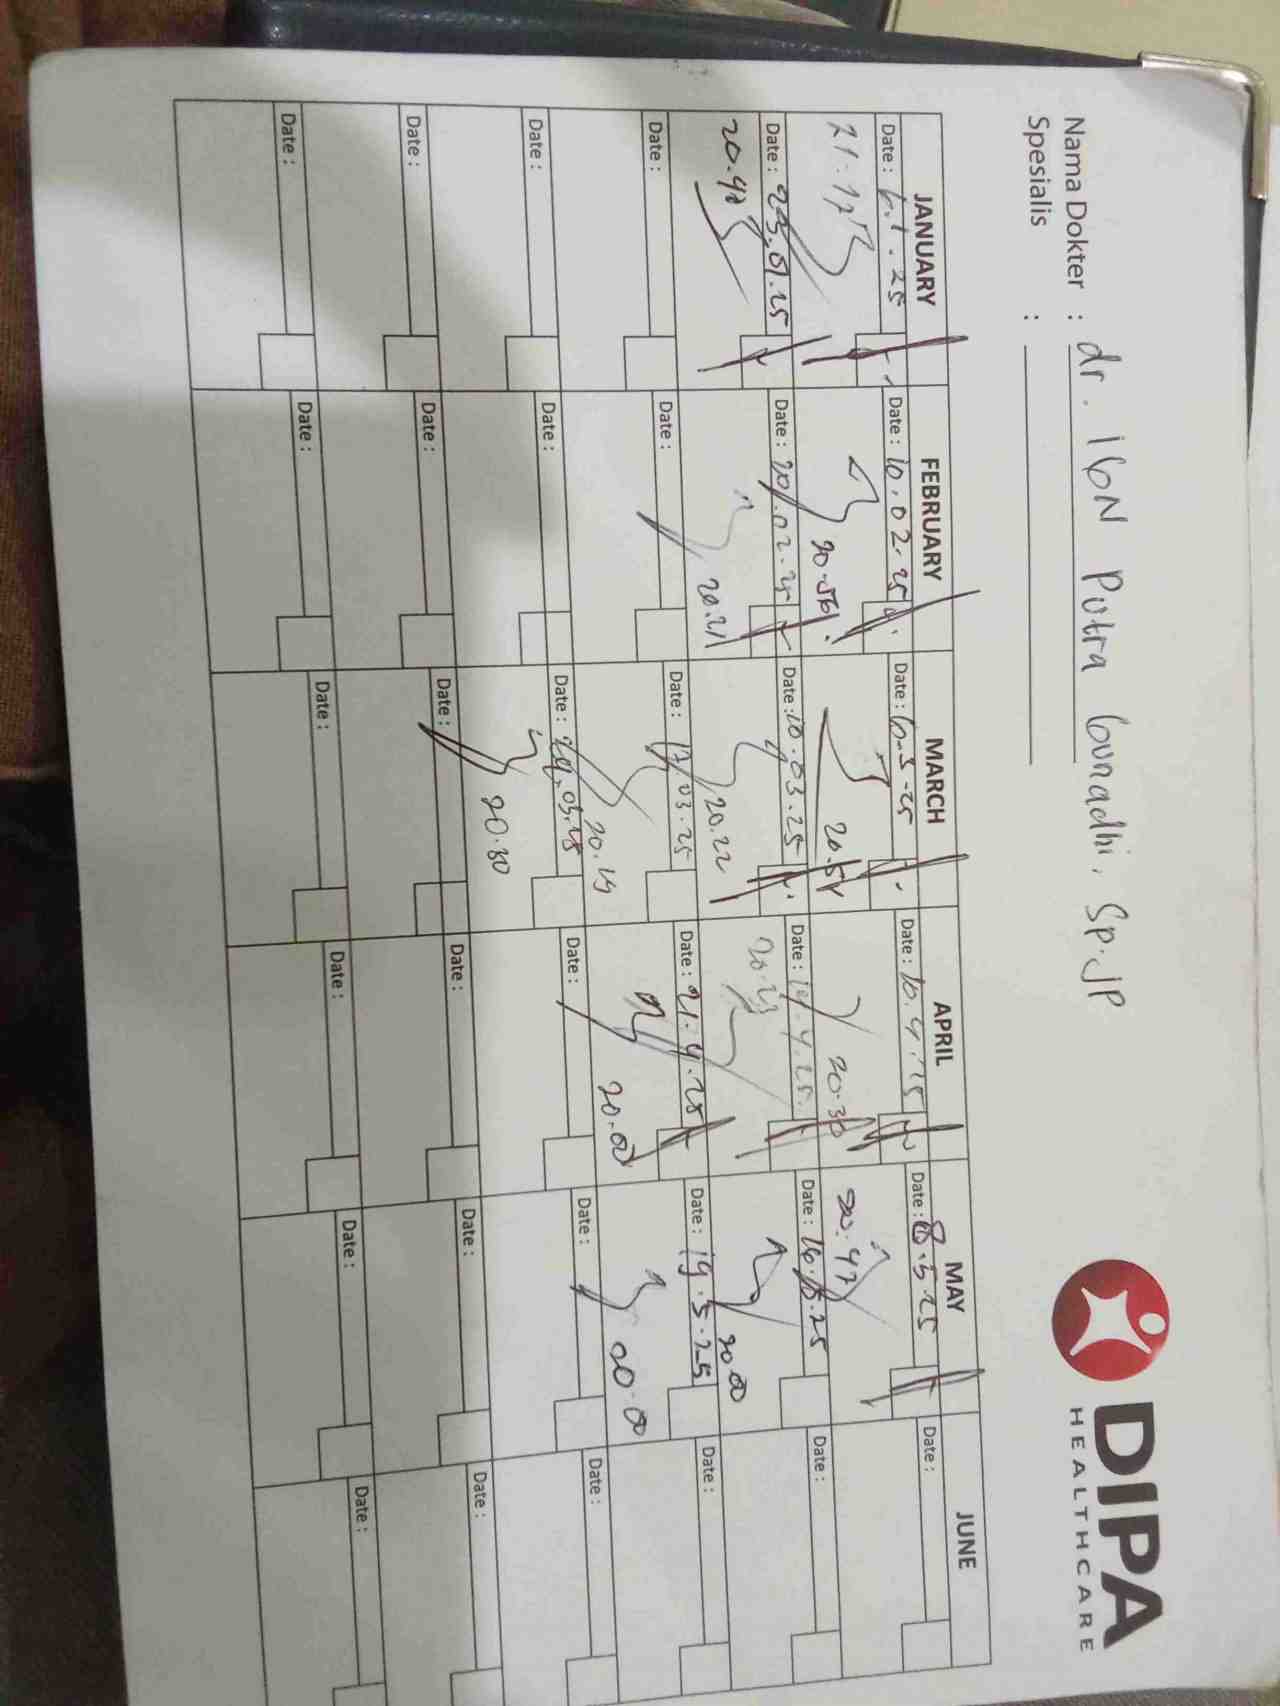 DIPA
HEALTHCARE
Nama Dokter : dr. IGN Putra Gunadhi, Sp.JP
Spesialis :
JANUARY FEBRUARY MARCH APRIL MAY JUNE
Date : 6.1.25 Date : 10.02.25 Date : 6-3-25 Date : 10.4.25 Date : 8.5.25 Date :
21.17 20.56 20.51 20.30 20.47
Date : 23.01.25 Date : 20.02.25 Date : 10.03.25 Date : 14.4.25 Date : 16.5.25 Date :
20.42 20.21 20.22 20.23 20.00
Date : Date : Date : 17.03.25 Date : 21.4.25 Date : 19.5.25 Date :
20.19 20.00 20.00
Date : Date : Date : 24.03.25 Date : Date : Date :
20.30
Date : Date : Date : Date : Date : Date :
Date : Date : Date : Date : Date : Date :